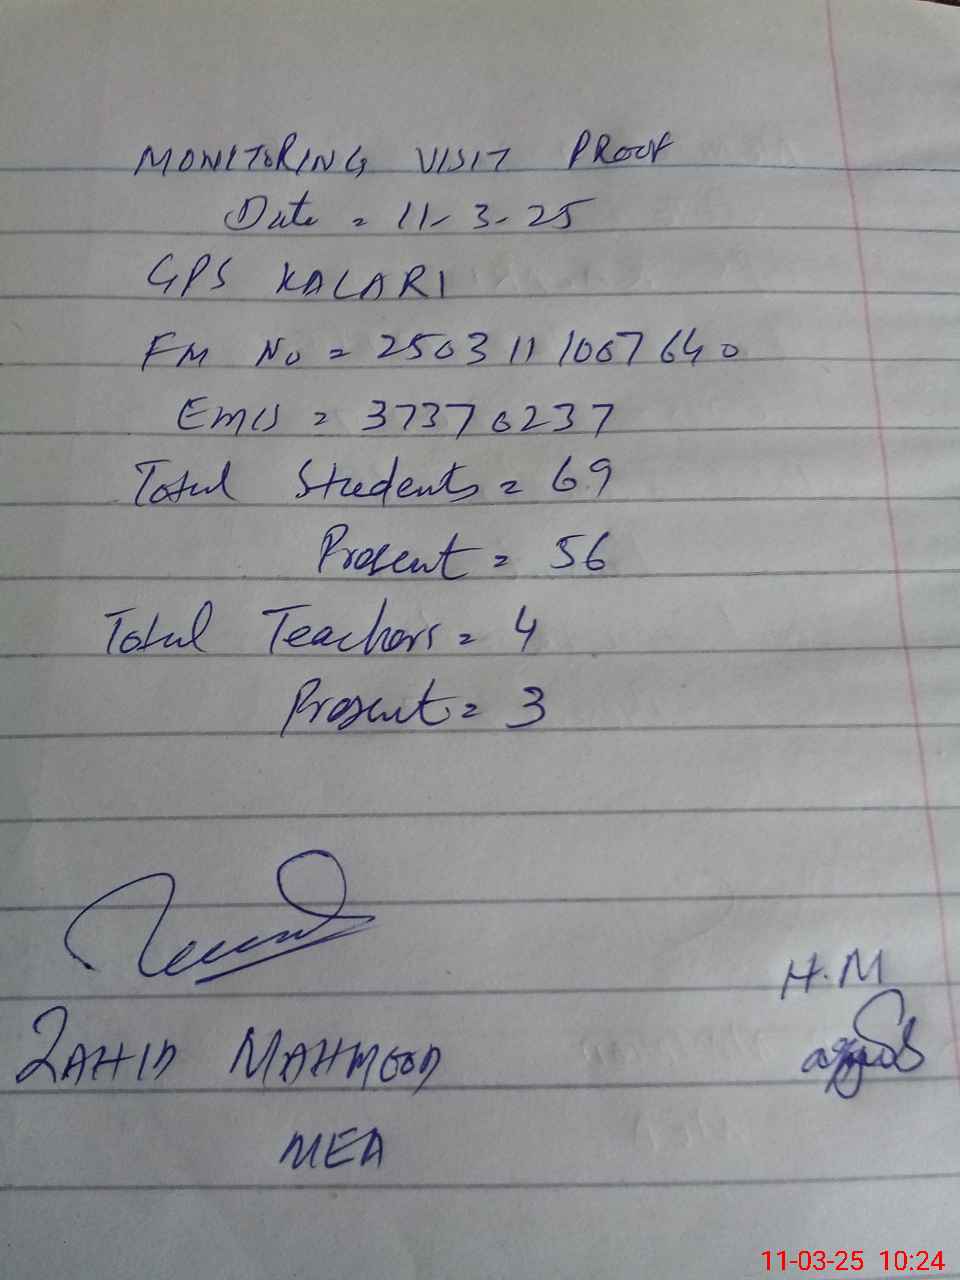 MONITORING VISIT PROOF
Date = 11-3-25
GPS KALARI
FM No = 2503111067640
EMIS = 37370237
Total Students = 69
Present = 56
Total Teachers = 4
Present = 3
H.M
ZAHID MAHMOOD
MEA
11-03-25 10:24